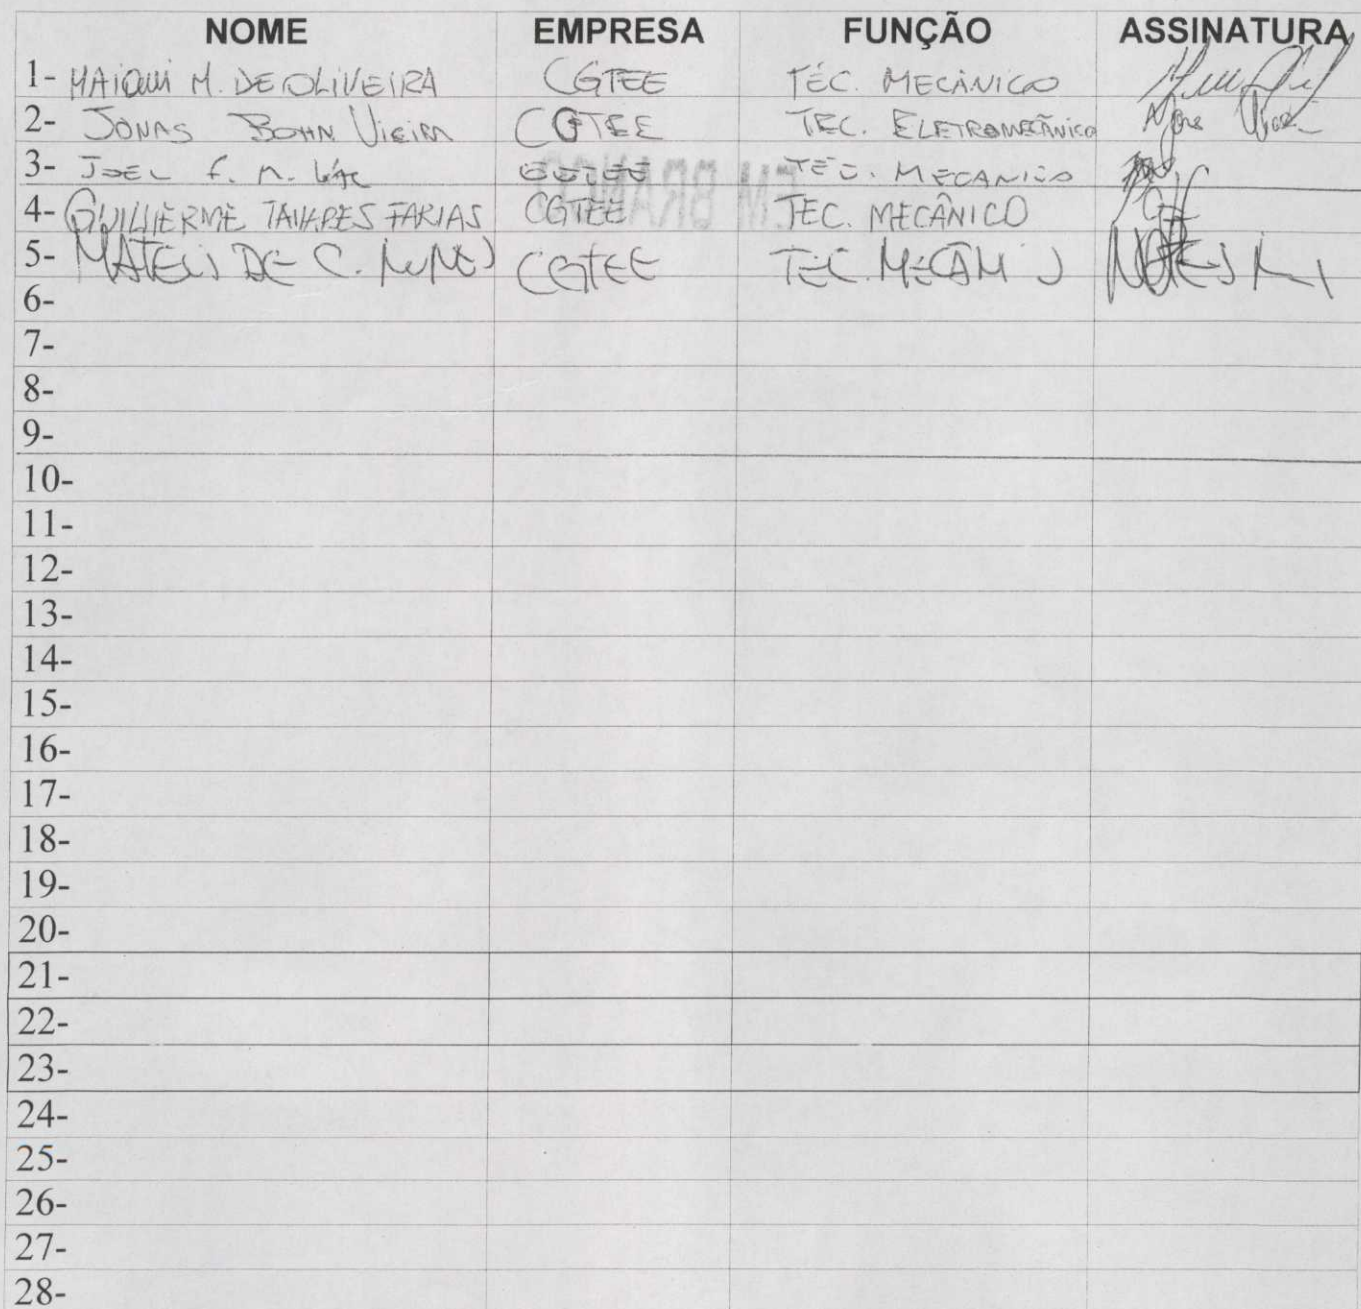 NOME EMPRESA FUNÇÃO ASSINATURA
1- MAIQUI M. DE OLIVEIRA CGTEE TÉC. MECÂNICO
2- JONAS BOHN VIEIRA CGTEE TEC. ELETROMECÂNICO
3- JOEL F. M. CGTEE TÉC. MECANICO
4- GUILHERME TAVARES FARIAS CGTEE TEC. MECÂNICO
5- DE C. NUNES CGTEE TEC.
6-
7-
8-
9-
10-
11-
12-
13-
14-
15-
16-
17-
18-
19-
20-
21-
22-
23-
24-
25-
26-
27-
28-
EM BRANCO